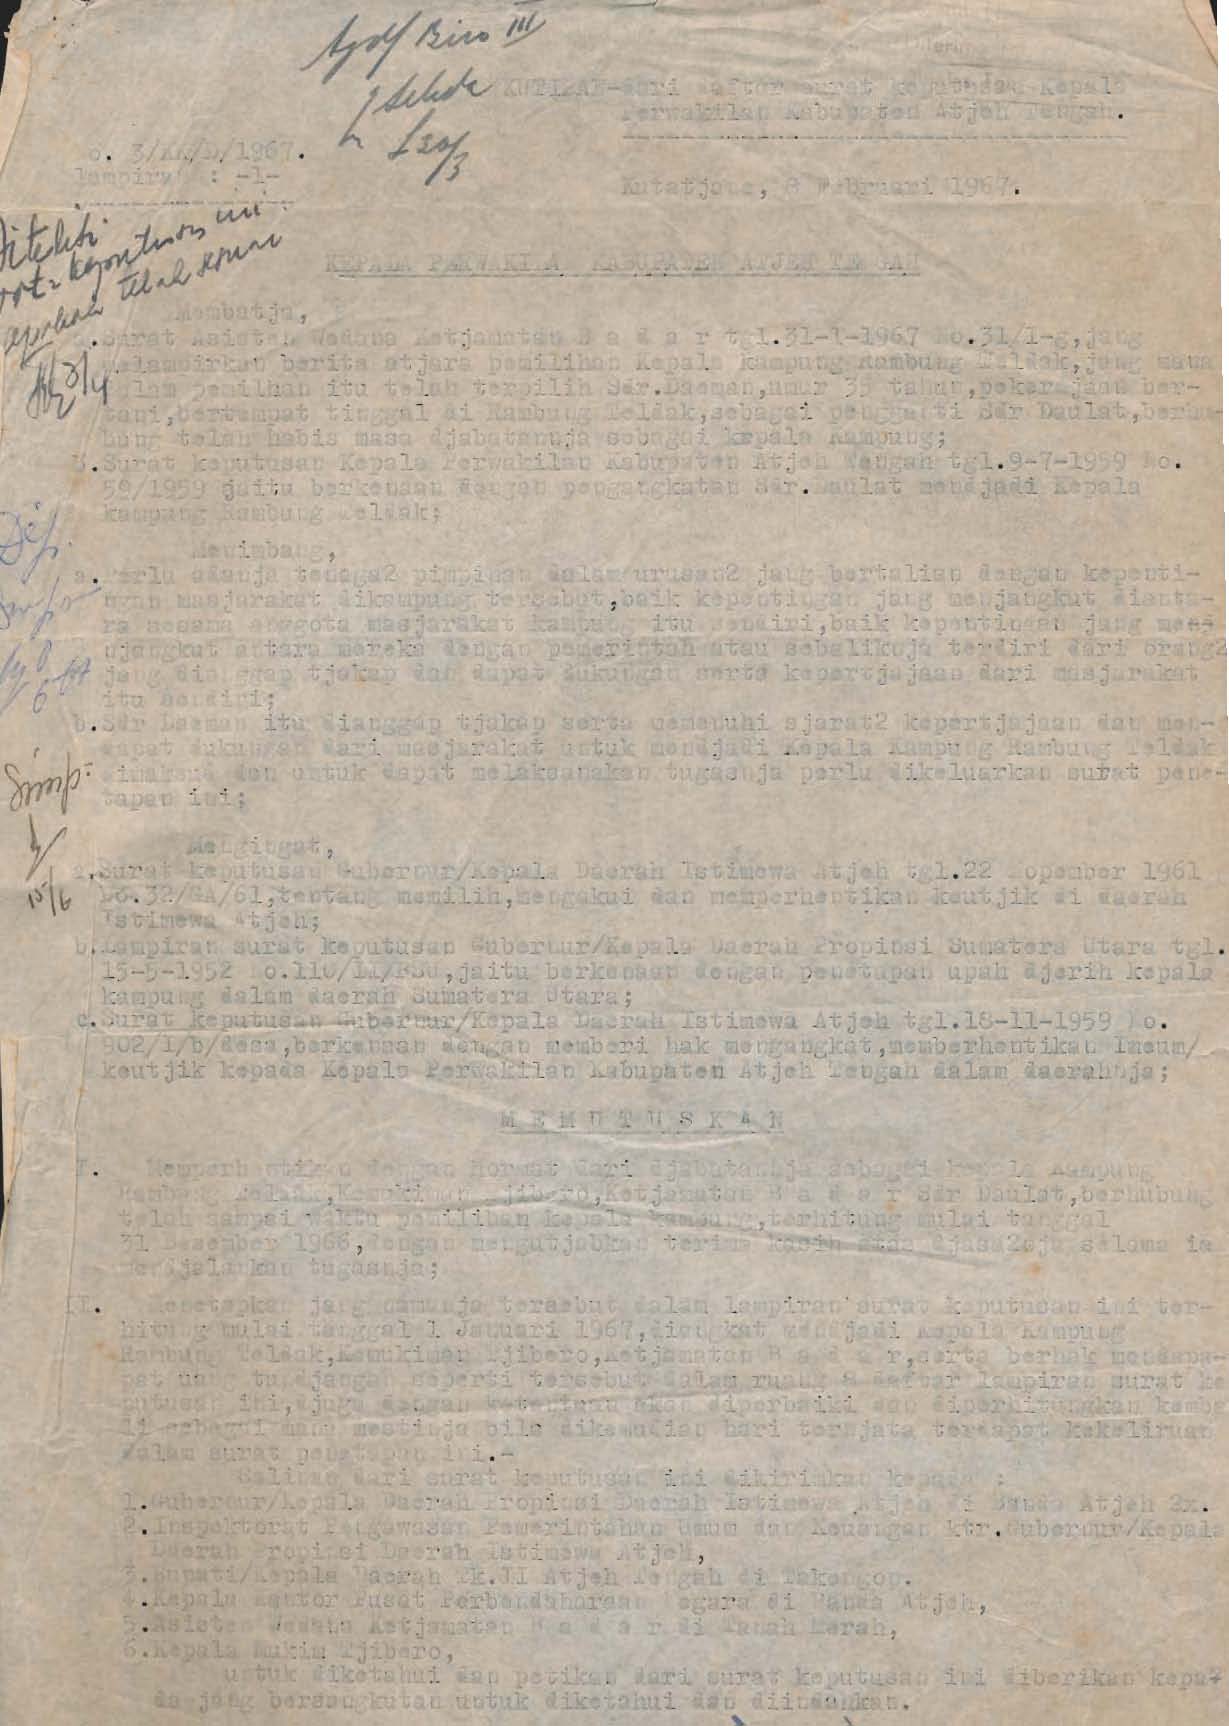 Biro III
KUTIPAN-dari daftar surat keputusan Kepala
Perwakilan Kabupaten Atjeh Tengah.
o. 3/KK/D/1967.
lampiran : -1-
Kutatjane, 8 Februari 1967.
Diteliti
KEPALA PERWAKILAN KABUPATEN ATJEH TENGAH
telah
Membatja,
a.Surat Asisten Wedana Ketjamatan B a d a r tgl.31-1-1967 No.31/1-g,jang
melampirkan berita atjara pemilihan Kepala kampung Rambung Teldak,jang mana
dalam pemilihan itu telah terpilih Sdr.Daeman,umur 35 tahun,pekerdjaan ber-
tani,bertempat tinggal di Rambung Teldak,sebagai pengganti Sdr Daulat,berhu-
bung telah habis masa djabatannja sebagai kepala Kampung;
b.Surat keputusan Kepala Perwakilan Kabupaten Atjeh Tengah tgl.9-7-1959 No.
59/1959 jaitu berkenaan dengan pengangkatan Sdr.Daulat mendjadi Kepala
kampung Rambung Teldak;
Menimbang,
a.Perlu adanja tenaga2 pimpinan dalam urusan2 jang bertalian dengan kepenti-
ngan masjarakat dikampung tersebut,baik kepentingan jang menjangkut dianta-
ra sesama anggota masjarakat kampung itu sendiri,baik kepentingan jang menj
njangkut antara mereka dengan pemerintah atau sebaliknja terdiri dari orang2
jang dianggap tjakap dan dapat dukungan serta kepertjajaan dari masjarakat
itu sendiri;
b.Sdr Daeman itu dianggap tjakap serta memenuhi sjarat2 kepertjajaan dan men-
dapat dukungan dari masjarakat untuk mendjadi Kepala Kampung Rambung Teldak
dimaksud dan untuk dapat melaksanakan tugasnja perlu dikeluarkan surat pene-
tapan ini;
15/6
Mengingat,
a.Surat keputusan Gubernur/Kepala Daerah Istimewa Atjeh tgl.22 Nopember 1961
No.32/GA/61,tentang memilih,mengakui dan memperhentikan keutjik di daerah
Istimewa Atjeh;
b.Lampiran surat keputusan Gubernur/Kepala Daerah Propinsi Sumatera Utara tgl.
15-5-1952 No.110/II/PSU,jaitu berkenaan dengan penetapan upah djerih kepala
kampung dalam daerah Sumatera Utara;
c.Surat keputusan Gubernur/Kepala Daerah Istimewa Atjeh tgl.18-11-1959 No.
902/1/b/desa,berkenaan dengan memberi hak mengangkat,memberhentikan Imeum/
keutjik kepada Kepala Perwakilan Kabupaten Atjeh Tengah dalam daerahnja;
M E M U T U S K A N
I. Memperhentikan dengan Hormat dari djabatannja sebagai kepala Kampung
Rambung Teldak,Kemukiman Tjibero,Ketjamatan B a d a r Sdr Daulat,berhubung
telah sampai waktu pemilihan kepala Kampung,terhitung mulai tanggal
31 Desember 1966,dengan mengutjapkan terima kasih atas djasa2nja selama ia
mendjalankan tugasnja;
II. Menetapkan jang namanja tersebut dalam lampiran surat keputusan ini ter-
hitung mulai tanggal 1 Januari 1967,diangkat mendjadi Kepala Kampung
Rambung Teldak,Kemukiman Tjibero,Ketjamatan B a d a r,serta berhak mendapa-
pat uang tundjangan seperti tersebut dalam ruang 8 daftar lampiran surat ke
putusan ini,djuga dengan ketentuan akan diperbaiki dan diperhitungkan kemba
li sebagaimana mestinja bila dikemudian hari ternjata terdapat kekeliruan
dalam surat penetapan ini.-
Salinan dari surat keputusan ini dikirimkan kepada :
1.Gubernur/Kepala Daerah Propinsi Daerah Istimewa Atjeh di Banda Atjeh 2x.
2.Inspektorat Pengawasan Pemerintahan Umum dan Keuangan ktr.Gubernur/Kepala
Daerah Propinsi Daerah Istimewa Atjeh,
3.Bupati/Kepala Daerah Tk.II Atjeh Tengah di Takengon.
4.Kepala Kantor Pusat Perbendaharaan Negara di Banda Atjeh,
5.Asisten Wedana Ketjamatan B a d a r di Tanah Merah,
6.Kepala Mukim Tjibero,
untuk diketahui dan petikan dari surat keputusan ini diberikan kepa-
da jang bersangkutan untuk diketahui dan diindahkan.